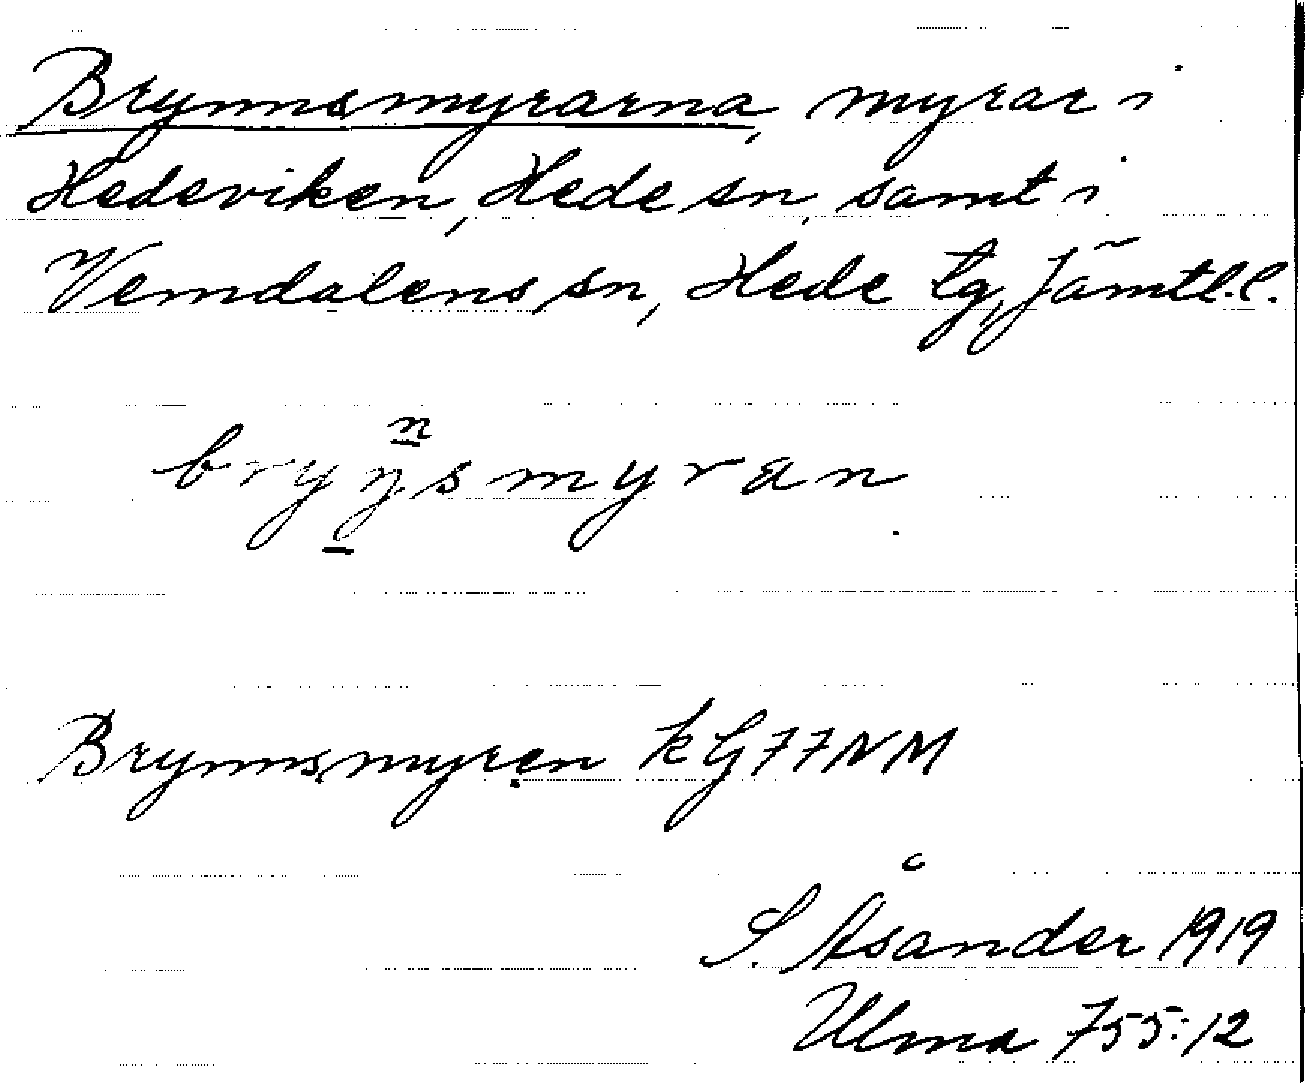 Brynnsmyrarna, myrar i
Hedeviken, Hede sn, samt i
Vemdalens sn, Hede tg, Jämtl. l.
n
bryŋsmyran
Brynnsmyren kG77NM
S. Åsander 1919
Ulma 755:12